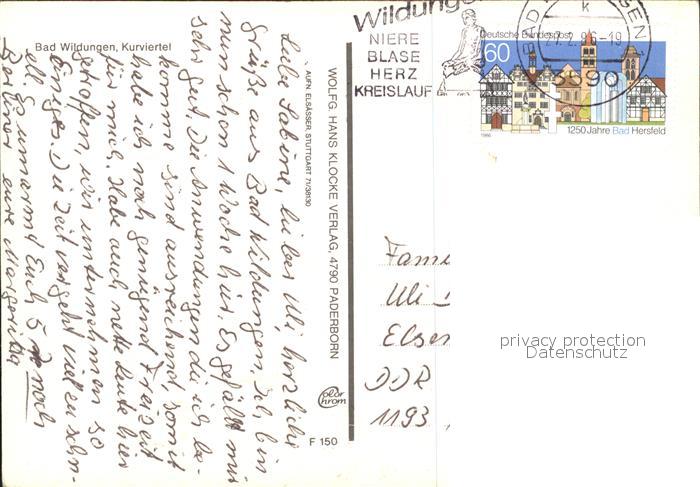 Bad Wildungen, Kurviertel
Liebe Sabine, lieber Uli, herzliche
Grüße aus Bad Wildungen. Ich bin
nun schon 1 Woche hier. Es gefällt mir
sehr gut. Die Anwendungen die ich be-
komme sind ausreichend, somit
habe ich noch genügend Freizeit
für mich. Habe auch nette Leute hier
getroffen, wir unternehmen so
Einiges. Die Zeit vergeht viel zu schn-
ell. Es umarmt Euch 5 noch
Berliner eure Margerita
AUFN. ELSÄSSER, STUTTGART 71/38130
WOLFG. HANS KLOCKE VERLAG, 4790 PADERBORN
color
chrom
F 150
Wildungen
NIERE
BLASE
HERZ
KREISLAUF
BAD WILDUNGEN
k
27.2.86-19
3590
Deutsche Bundespost
60
1986
1250 Jahre Bad Hersfeld
Fami
Uli
Elsen
DDR
1193
privacy protection
Datenschutz